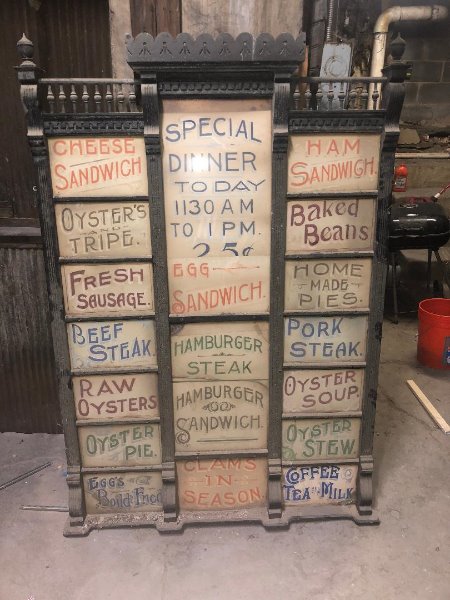 CHEESE
SANDWICH
OYSTER'S
AND
TRIPE.
FRESH
SAUSAGE.
BEEF
STEAK.
RAW
OYSTERS
OYSTER
PIE.
EGG'S
Boil'd Fried
SPECIAL
DINNER
TO DAY
1130 AM
TO 1 P.M.
25¢
EGG
SANDWICH.
HAMBURGER
STEAK
HAMBURGER
SANDWICH.
CLAMS
IN
SEASON.
HAM
SANDWICH.
Baked
Beans
HOME
MADE
PIES.
PORK
STEAK.
OYSTER
SOUP.
OYSTER
STEW
COFFEE
TEA AND MILK